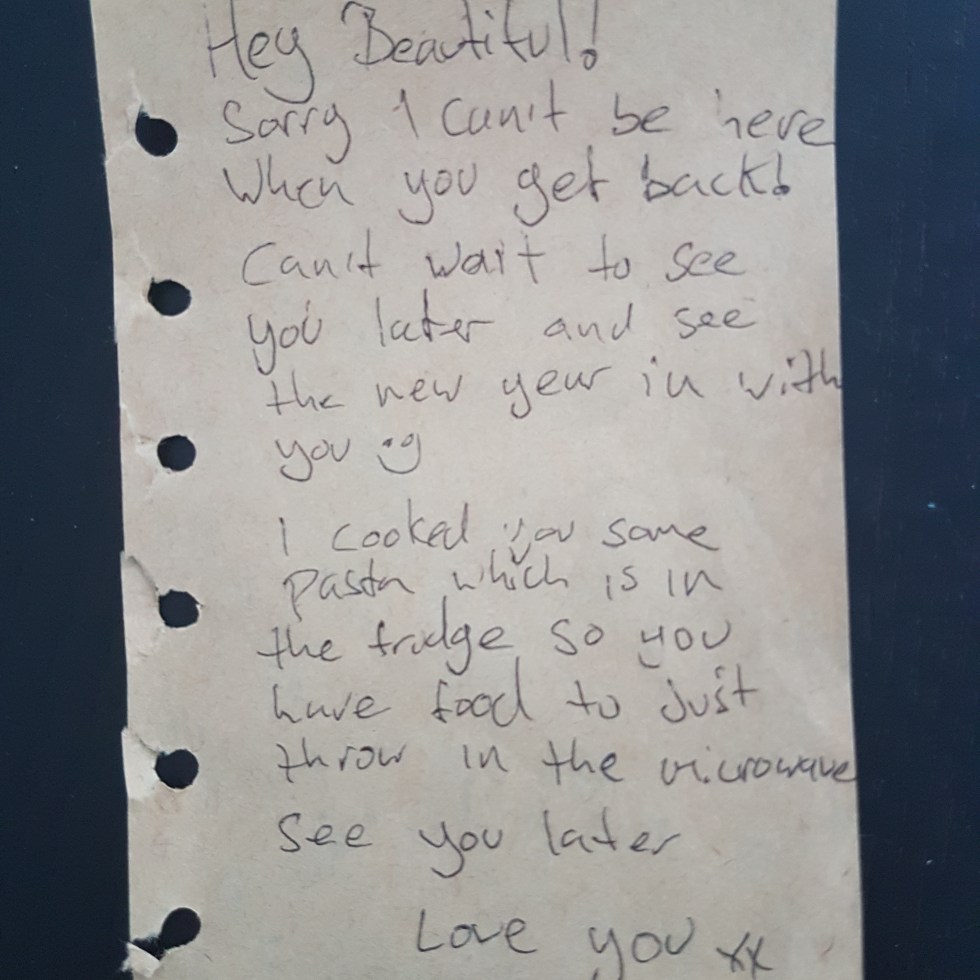 Hey Beautiful!
Sorry I can't be here
when you get back!
Can't wait to see
you later and see
the new year in with
you :)
I cooked you some
pasta which is in
the fridge so you
have food to just
throw in the microwave
See you later
Love you xx